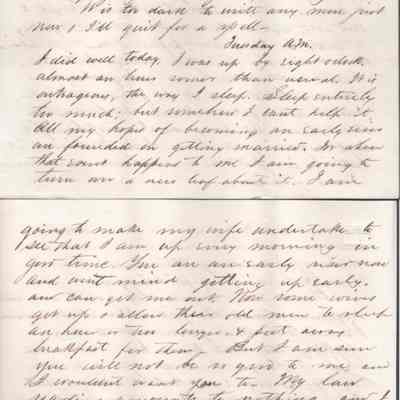 It is too dark to write any more just
now & I'll quit for a spell—
Tuesday A.M.
I did well today, I was up by eight o'clock,
almost an hour sooner than usual. It is
outrageous, the way I sleep. Sleep entirely
too much; but somehow I cant help it.
All my hopes of becoming an early riser
are founded on getting married. For when
that event happens to me I am going to
turn over a new leaf about it. I am
going to make my wife undertake to
see that I am up every morning in
good time. You are an early riser now
and wont mind getting up early.
and can get me out. Now some wives
get up & allow their old men to sleep
an hour or two longer & put away
breakfast for them, But I am sure
you will not be so good to me and
I wouldn't want you to. My law
reading amounts to nothing and I